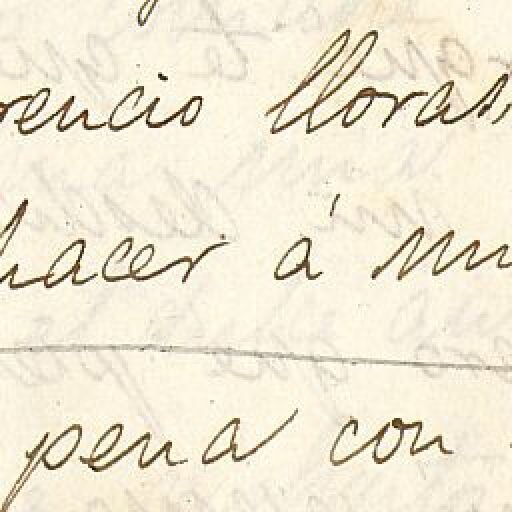 rencio lloras,
hacer á mu
pena con